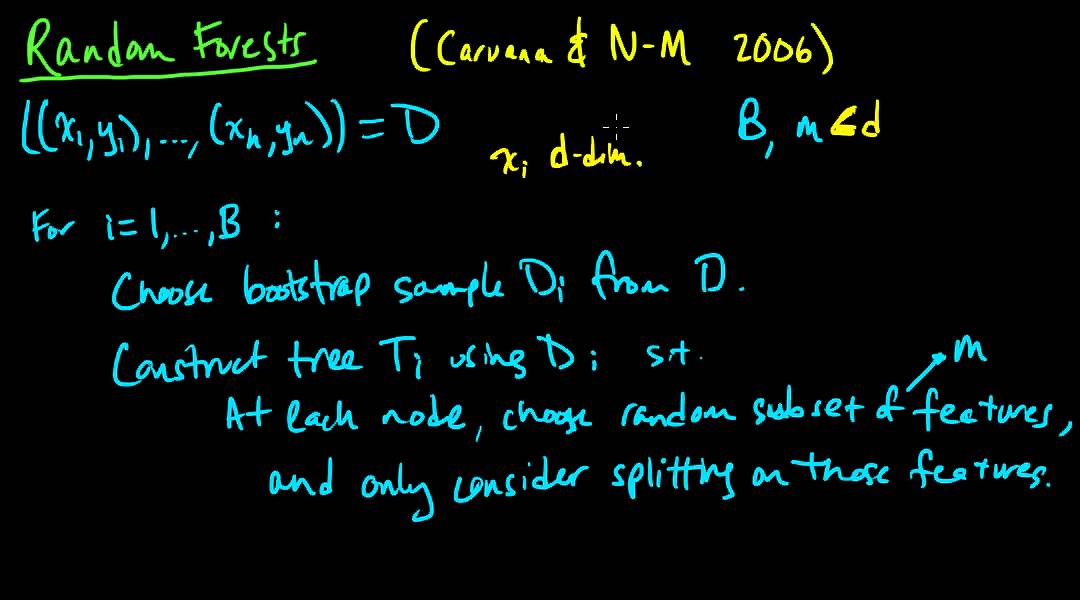 Random Forests (Caruana & N-M 2006)
((x₁,y₁),...,(xₙ,yₙ)) = D xᵢ d-dim. B, m < d
For i=1,...,B :
Choose bootstrap sample Dᵢ from D.
Construct tree Tᵢ using Dᵢ s.t.
m
At each node, choose random subset of features,
and only consider splitting on those features.